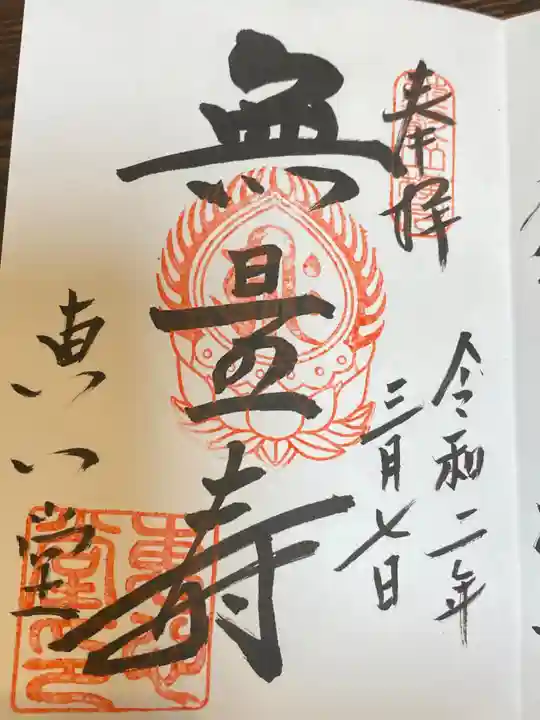 奉拝
令和二年
三月七日
無量寿
恵心堂